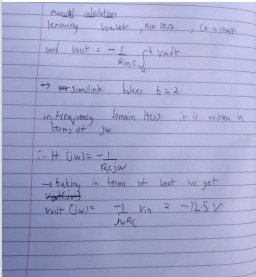 manual calculation
knowing Vin=1V, Rin=10kΩ, Cf=10nF
and Vout = -1/RinCf ∫ᵗ₀ Vin dt
→ simulink takes t=2
in frequency domain H(s) it is written in
terms of jw
∴ H(jw) = -1/RCjw
→ taking in terms of Vout we get
Vout(jw) = -1/jwRC Vin = -12.5 V